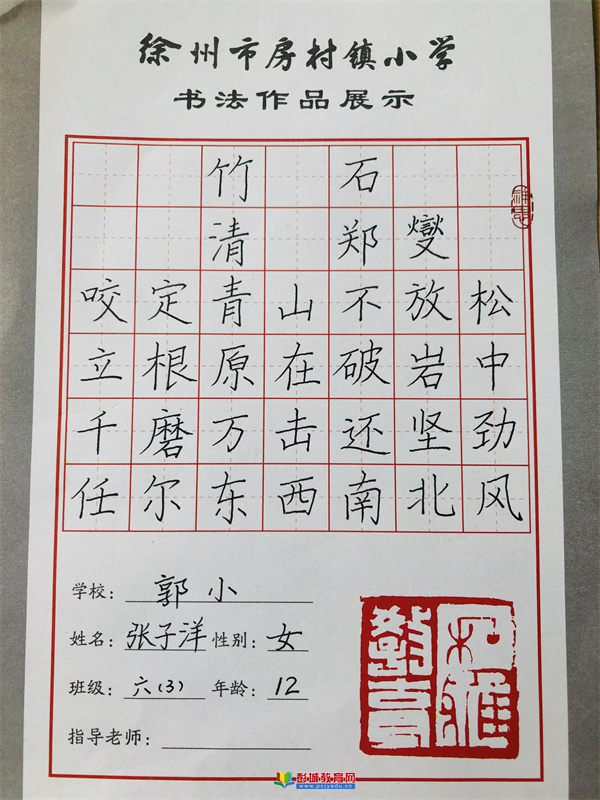 徐州市房村镇小学
书法作品展示
竹石
清郑燮
咬定青山不放松
立根原在破岩中
千磨万击还坚劲
任尔东西南北风
学校：郭小
姓名：张子洋 性别：女
班级：六(3) 年龄：12
指导老师：
彭城教育网
www.pcjyedu.cn